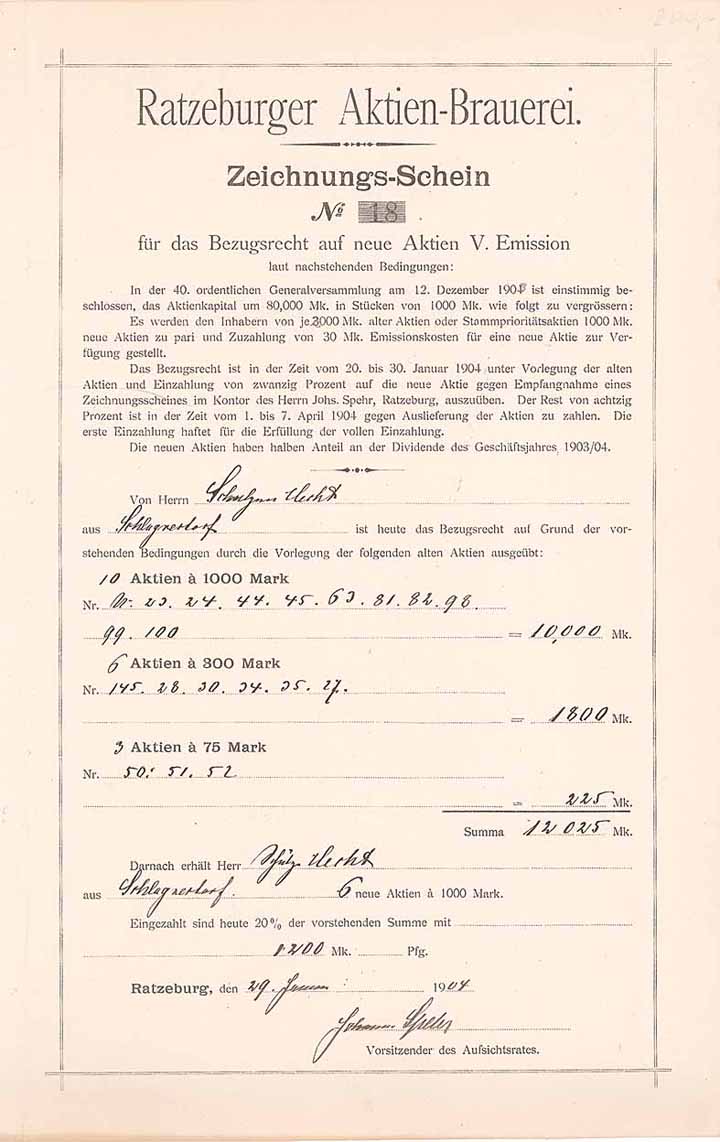 Ratzeburger Aktien-Brauerei.
Zeichnungs-Schein
№ 18.
für das Bezugsrecht auf neue Aktien V. Emission
laut nachstehenden Bedingungen:
In der 40. ordentlichen Generalversammlung am 12. Dezember 1903 ist einstimmig be-
schlossen, das Aktienkapital um 80,000 Mk. in Stücken von 1000 Mk. wie folgt zu vergrössern:
Es werden den Inhabern von je 2000 Mk. alter Aktien oder Stammprioritätsaktien 1000 Mk.
neue Aktien zu pari und Zuzahlung von 30 Mk. Emissionskosten für eine neue Aktie zur Ver-
fügung gestellt.
Das Bezugsrecht ist in der Zeit vom 20. bis 30. Januar 1904 unter Vorlegung der alten
Aktien und Einzahlung von zwanzig Prozent auf die neue Aktie gegen Empfangnahme eines
Zeichnungsscheines im Kontor des Herrn Johs. Spehr, Ratzeburg, auszuüben. Der Rest von achtzig
Prozent ist in der Zeit vom 1. bis 7. April 1904 gegen Auslieferung der Aktien zu zahlen. Die
erste Einzahlung haftet für die Erfüllung der vollen Einzahlung.
Die neuen Aktien haben halben Anteil an der Dividende des Geschäftsjahres 1903/04.
Von Herrn Hecht
aus Schlagnerdorf ist heute das Bezugsrecht auf Grund der vor-
stehenden Bedingungen durch die Vorlegung der folgenden alten Aktien ausgeübt:
10 Aktien à 1000 Mark
Nr. 23. 24. 44. 45. 63. 81. 82. 98.
99. 100 = 10,000 Mk.
6 Aktien à 300 Mark
Nr. 145. 28. 30. 34. 35. 27.
= 1800 Mk.
3 Aktien à 75 Mark
Nr. 50. 51. 52
= 225 Mk.
Summa 12025 Mk.
Darnach erhält Herr Hecht
aus Schlagnerdorf. 6 neue Aktien à 1000 Mark.
Eingezahlt sind heute 20% der vorstehenden Summe mit
1200 Mk. Pfg.
Ratzeburg, den 29. Januar 1904
Vorsitzender des Aufsichtsrates.